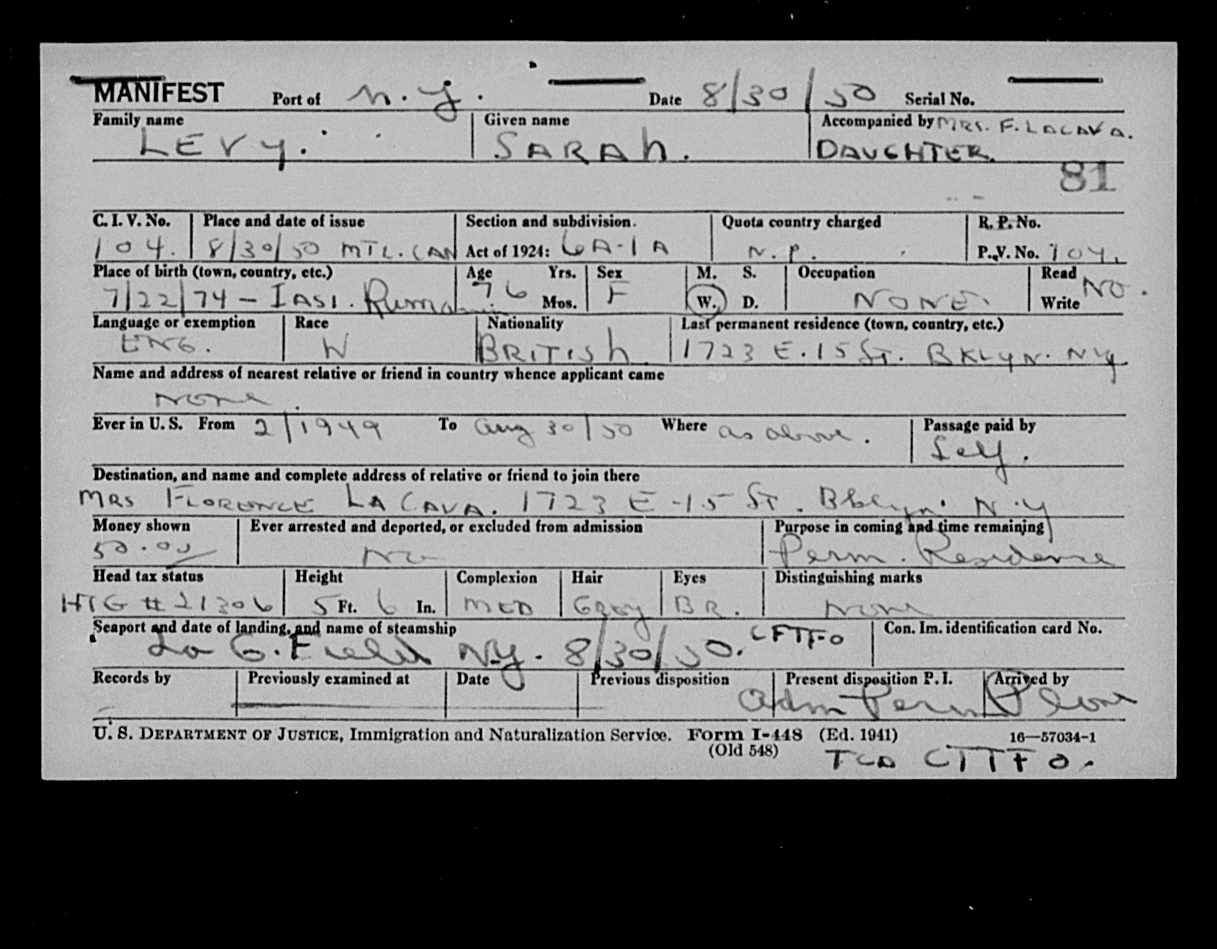 MANIFEST Port of N.Y. Date 8/30/50 Serial No.
Family name Given name Accompanied by MRS. F. LACAVA.
LEVY. SARAH. DAUGHTER.
81
C. I. V. No. Place and date of issue Section and subdivision. Quota country charged R. P. No.
104. 8/30/50 MTL. CAN Act of 1924: 6A-1A N.P. P.V. No. 104.
Place of birth (town, country, etc.) Age Yrs. Sex M. S. Occupation Read NO.
7/22/74 - IASI. Rumania 76 Mos. F W. D. NONE. Write
Language or exemption Race Nationality Last permanent residence (town, country, etc.)
ENG. W BRITISH 1723 E. 15 ST. BKLYN. NY
Name and address of nearest relative or friend in country whence applicant came
None.
Ever in U. S. From 2/1949 To Aug 30/50 Where as above. Passage paid by
Self.
Destination, and name and complete address of relative or friend to join there
MRS FLORENCE LA CAVA. 1723 E-15 ST. Bklyn. N.Y
Money shown Ever arrested and deported, or excluded from admission Purpose in coming and time remaining
50.00 No Perm. Residence
Head tax status Height Complexion Hair Eyes Distinguishing marks
HTG # 21306 5 Ft. 6 In. MED GREY BR. None
Seaport and date of landing, and name of steamship Con. Im. identification card No.
La G. Field N.Y. 8/30/50.
Records by Previously examined at Date Previous disposition Present disposition P. I. Arrived by
Adm Perm
U. S. DEPARTMENT OF JUSTICE, Immigration and Naturalization Service. Form I-448 (Ed. 1941) 16—57034-1
(Old 548)